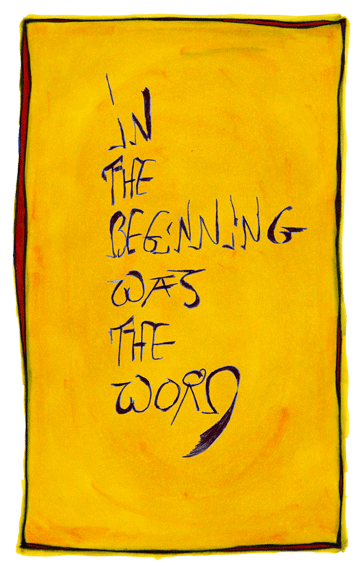 iN
THE
BEGiNNiNG
WAS
THE
WORD